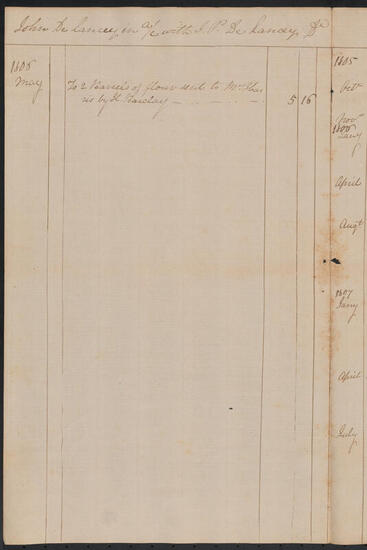 John De Lancey in a/c with J. P. De Lancey Dr
1806
May
To 2 Barrels of flour sent to Mr
ris by H. Barclay
5 16
1805
Octr
Novr
1806
Jany
April
Augt
1807
Jany
April
July